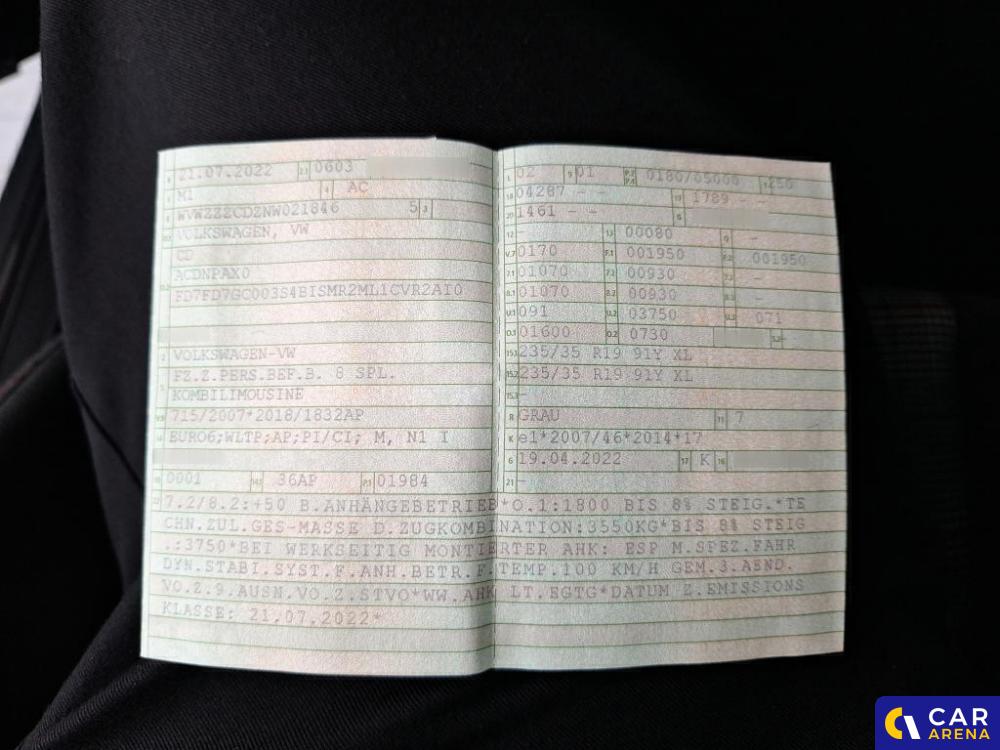 21.07.2022 0603
M1 AC
WVWZZZCDZNW021846 5
VOLKSWAGEN, VW
CD
ACDNPAX0
VOLKSWAGEN-VW
FZ.Z.PERS.BEF.B. 8 SPL.
KOMBILIMOUSINE
715/2007*2018/1832AP
EURO6;WLTP;AP;PI/CI; M, N1 I
0001 36AP 01984
02 01 0180/05000 250
04287 - - 1789 - -
1461 - -
- 00080 -
0170 001950 001950
01070 00930 -
01070 00930 -
091 03750 071
01600 0730 -
235/35 R19 91Y XL
235/35 R19 91Y XL
-
GRAU 7
e1*2007/46*2014*17
19.04.2022 K
-
7.2/8.2:+50 B.ANHÄNGEBETRIEB*O.1:1800 BIS 8% STEIG.*TE
CHN.ZUL.GES-MASSE D.ZUGKOMBINATION:3550KG*BIS 8% STEIG
.:3750*BEI WERKSEITIG MONTIERTER AHK: ESP M.SPEZ.FAHR
DYN.STABI.SYST.F.ANH.BETR.F.TEMP.100 KM/H GEM.3.AEND.
VO.Z.9.AUSN.VO.Z.STVO*WW.AHK LT.EGTG*DATUM Z.EMISSIONS
KLASSE: 21.07.2022*
CAR
ARENA